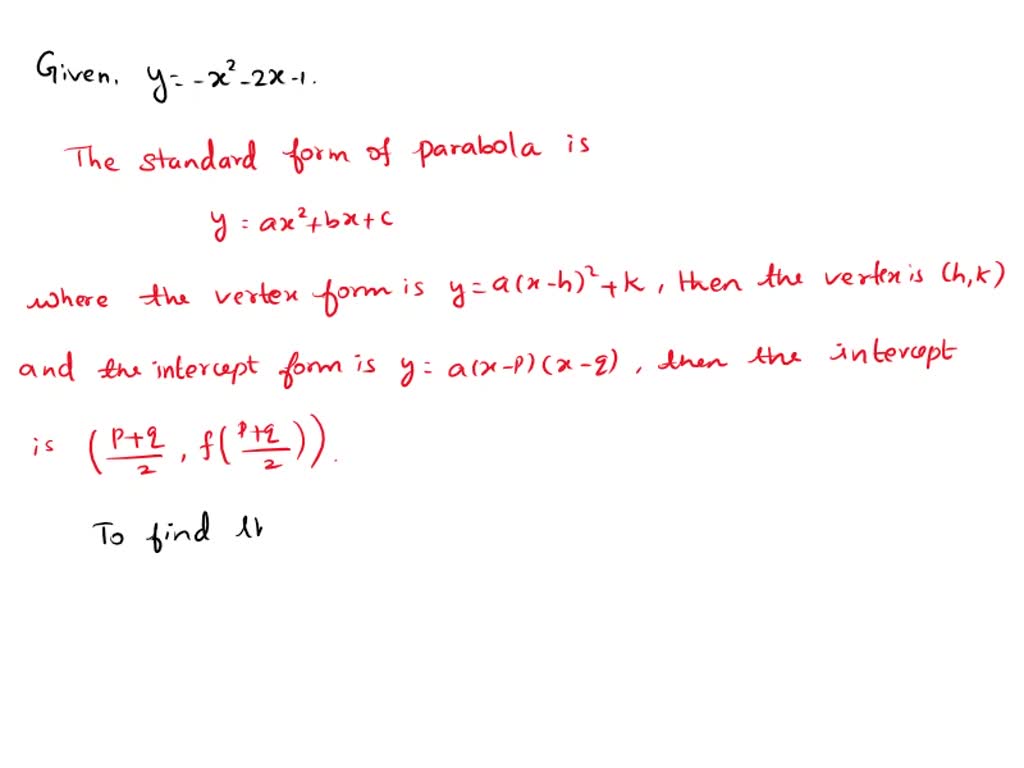 Given, y = -x² - 2x - 1.
The standard form of parabola is
y = ax² + bx + c
where the vertex form is y = a(x-h)² + k, then the vertex is (h,k)
and the intercept form is y = a(x-p)(x-q), then the intercept
is (p+q/2, f(p+q/2)).
To find